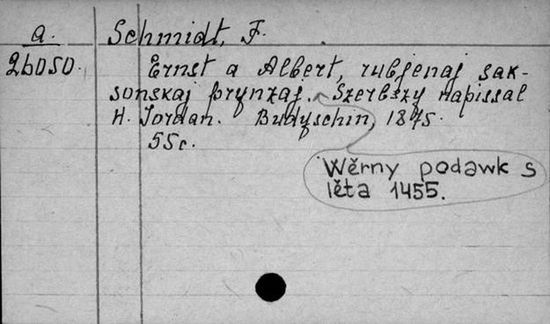 a. Schmidt, F.
26050. Ernst a Albert, rubjenaj sak-
sonskaj prynzaj. Szerbszy napissal
H. Jordan. Budyschin, 1875.
55 c.
Wěrny podawk s
lěta 1455.